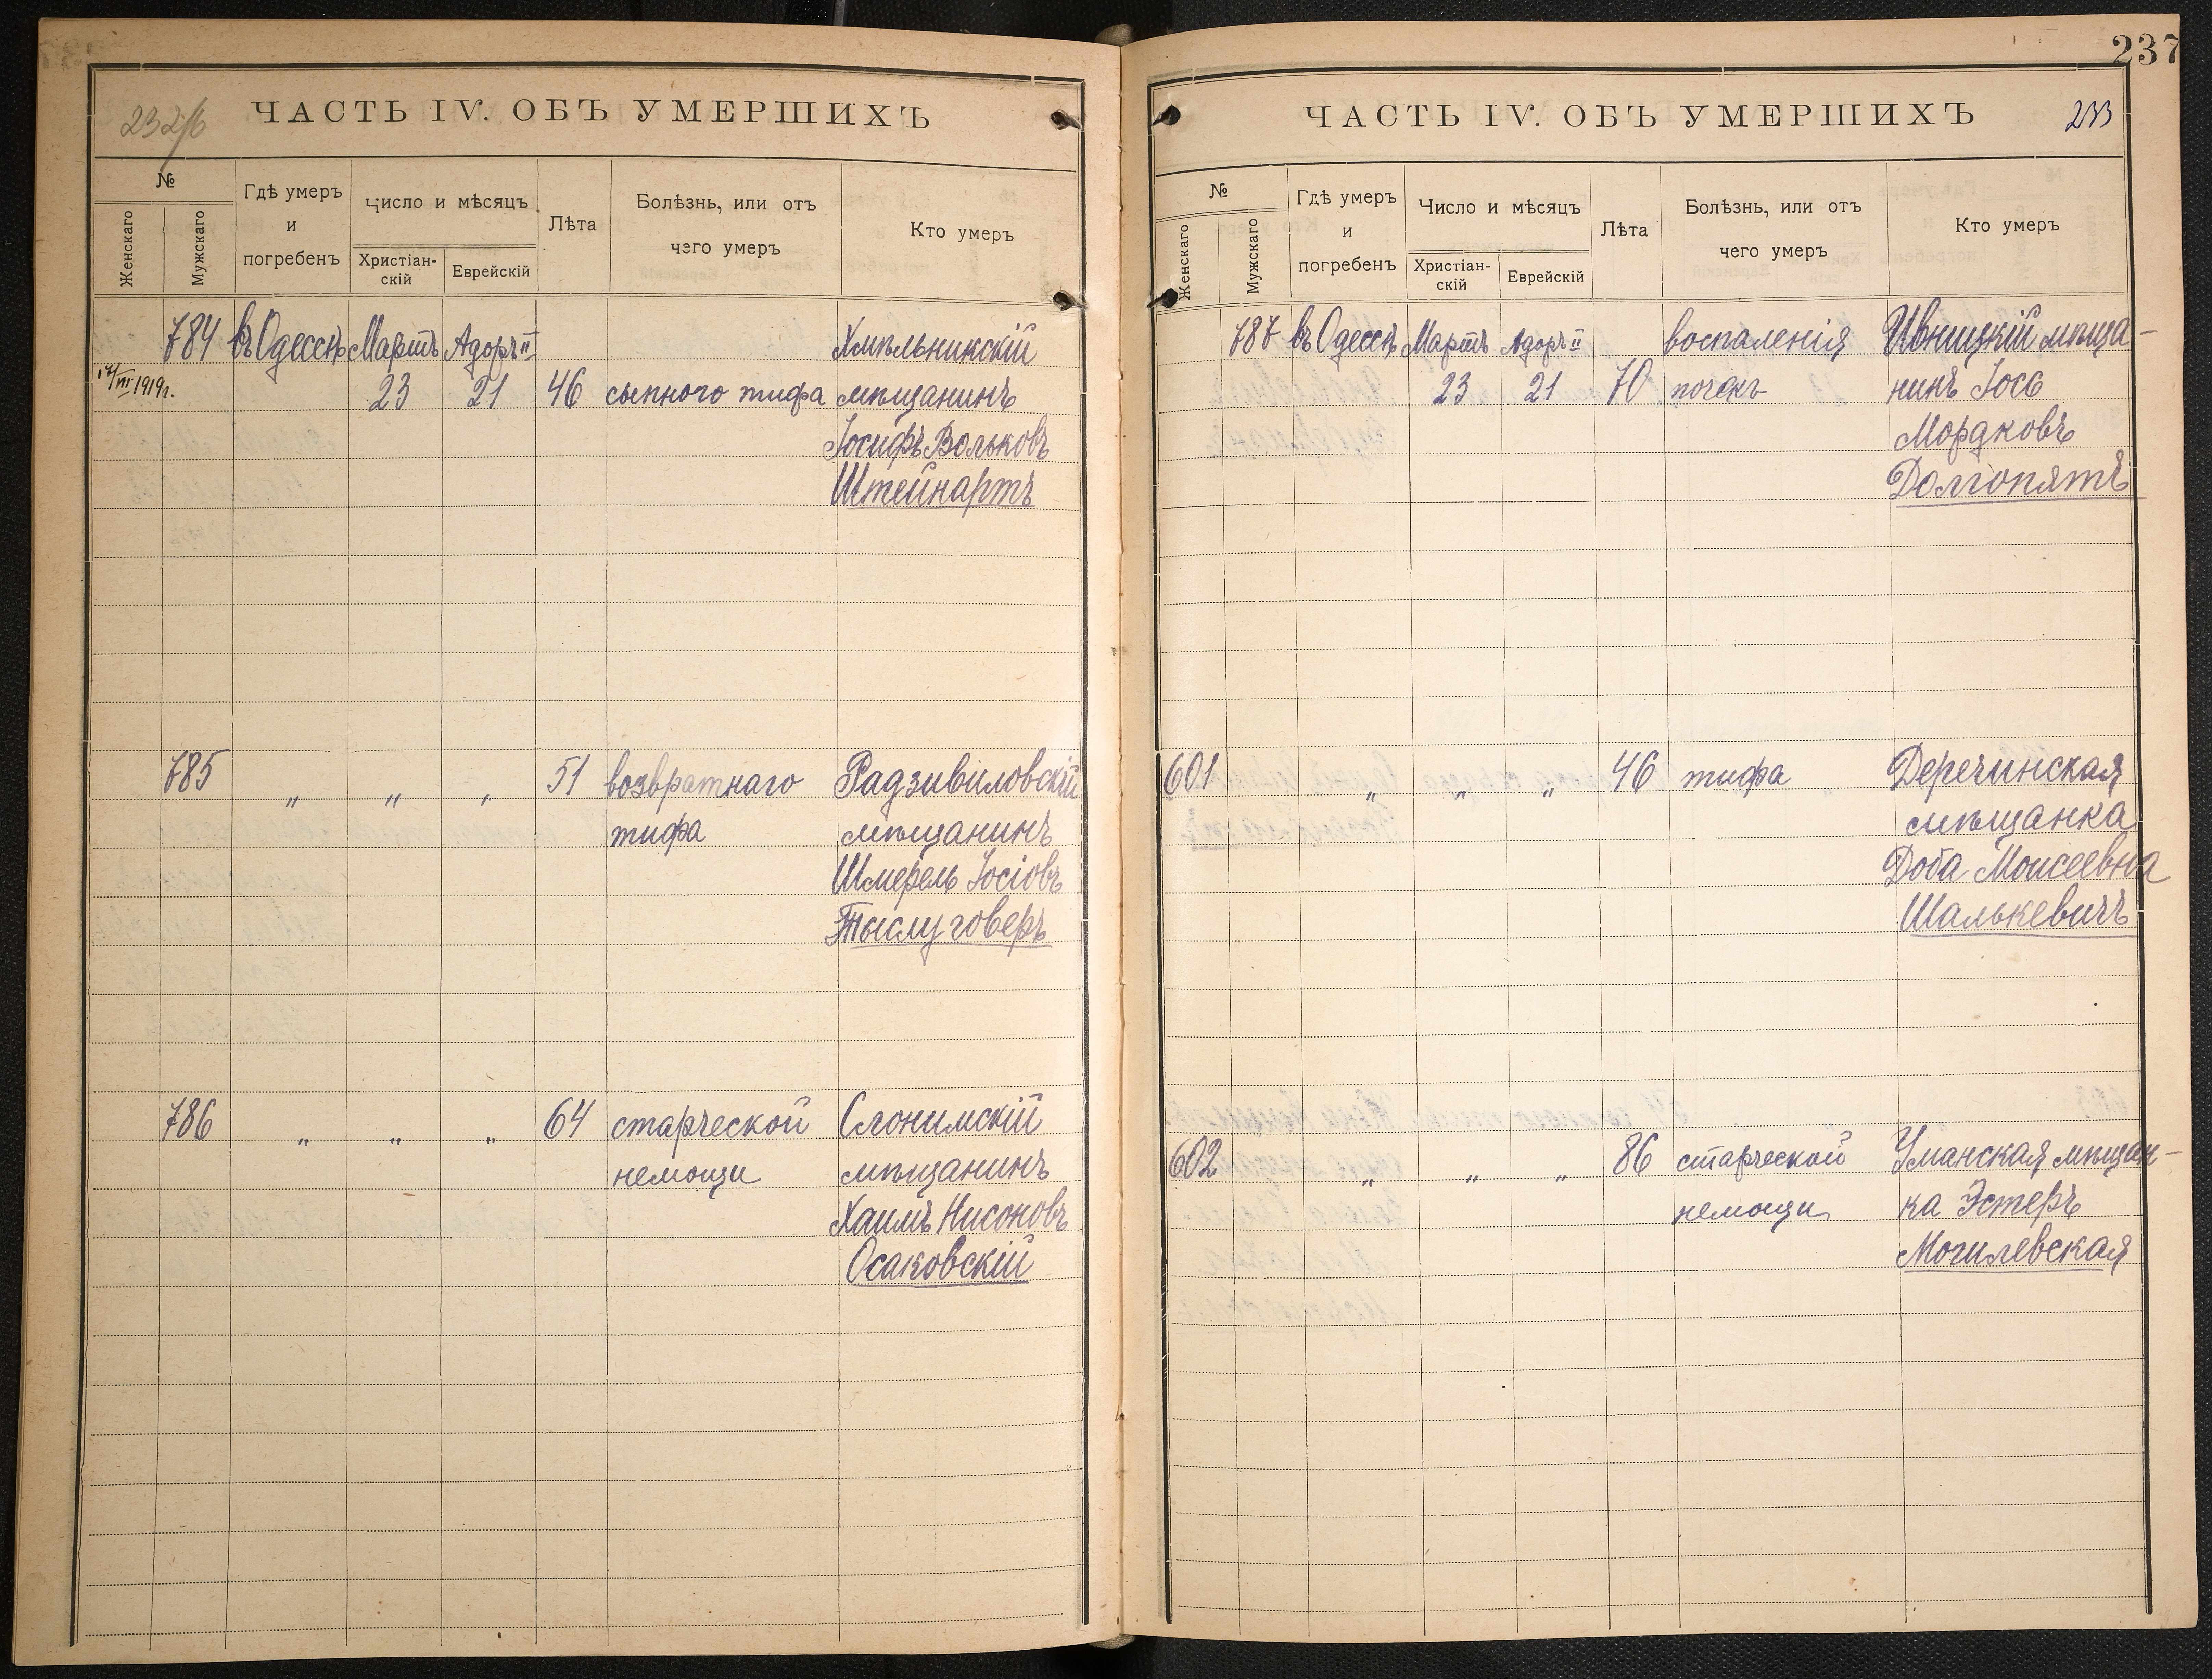 232/б
ЧАСТЬ IV. ОБЪ УМЕРШИХЪ
№
Женскаго
Мужскаго
Гдѣ умеръ
и
погребенъ
Число и мѣсяцъ
Христіан-
скій
Еврейскій
Лѣта
Болѣзнь, или отъ
чего умеръ
Кто умеръ
784 въ Одессѣ Мартъ Адоръ II Хмѣльникскій
/III 1919г. 23 21 46 сыпного тифа мѣщанинъ
Іосифъ Вольковъ
Штейнартъ
785 „ „ „ 51 возвратнаго Радзивиловскій
тифа мѣщанинъ
Шмерель Іосіовъ
Тыслуговеръ
786 „ „ „ 64 старческой Слонимскій
немощи мѣщанинъ
Хаимъ Нисоновъ
Осаковскій
237
ЧАСТЬ IV. ОБЪ УМЕРШИХЪ
233
№
Женскаго
Мужскаго
Гдѣ умеръ
и
погребенъ
Число и мѣсяцъ
Христіан-
скій
Еврейскій
Лѣта
Болѣзнь, или отъ
чего умеръ
Кто умеръ
787 въ Одессѣ Мартъ Адоръ II воспаленія Ивницкій мѣща-
23 21 70 почекъ нинъ Іось
Мордковъ
Долгопятъ
601 „ „ „ 46 тифа Деречинская
мѣщанка
Доба Моисеевна
Шалькевичъ
602 „ „ „ 86 старческой Уманская мѣщан-
немощи ка Эстеръ
Могилевская